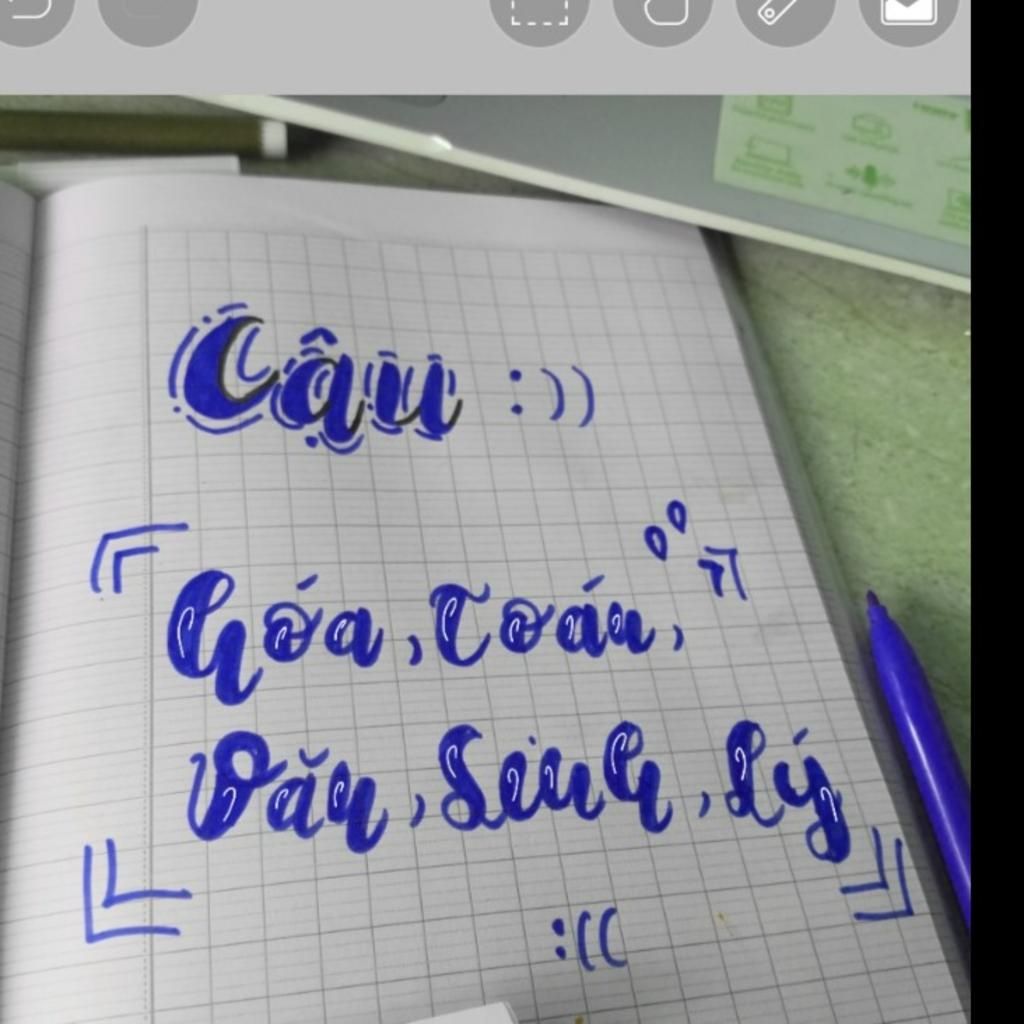 Cậu :))
Hóa, Toán,
Văn, Sinh, Lý
:((